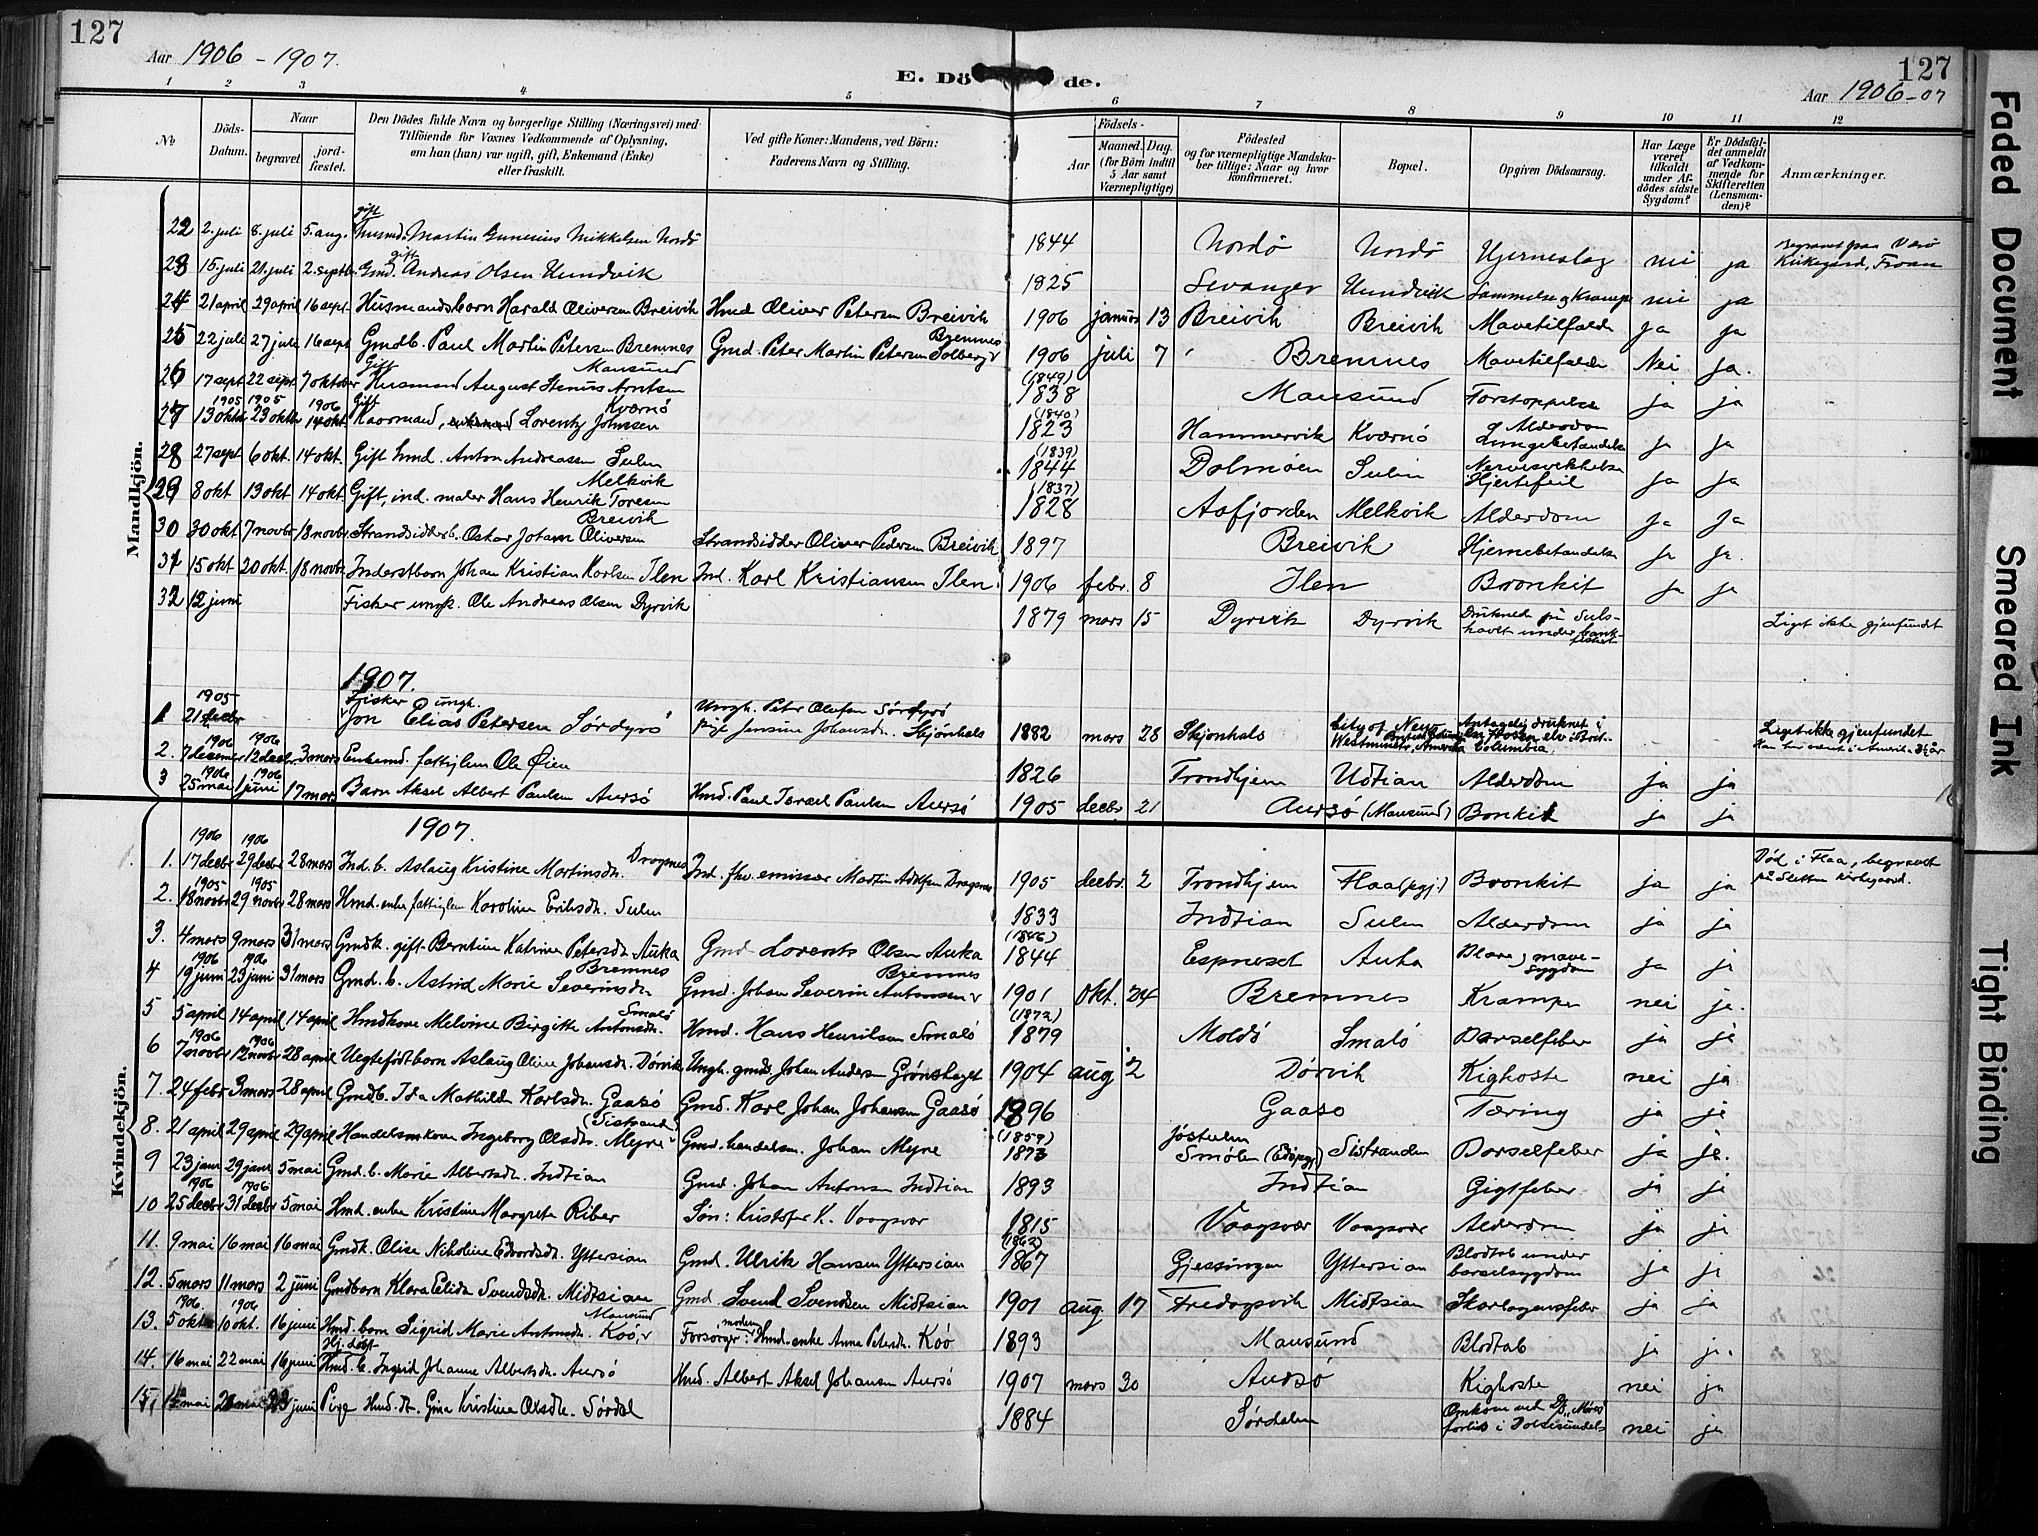 127
Aar 1906 - 1907.
E. Döde.
Aar 1906-07
127
1 2 3 4 5 6 7 8 9 10 11 12
No
Döds-Datum.
Naar
begravet
jord-fæstet.
Den Dödes fulde Navn og borgerlige Stilling (Næringsvei) med
Tilföiende for Voxnes Vedkommende af Oplysning,
om han (hun) var ugift, gift, Enkemand (Enke)
eller fraskilt.
Ved gifte Koner: Mandens, ved Börn:
Faderens Navn og Stilling.
Födsels-
Aar
Maaned. Dag.
(for Börn indtil
5 Aar samt
Værnepligtige)
Födested
og for værnepligtige Mandska-
ber tillige: Naar og hvor
konfirmeret.
Bopæl.
Opgiven Dödsaarsag.
Har Læge
været
tilkaldt
under Af-
dödes sidste
Sygdom?
Er Dödsfal-
det anmeldt
af Vedkom-
mende for
Skifteretten
(Lensman-
den)?
Anmærkninger.
Mandkjön.
22 2. juli 8. juli 5. aug. gift Husmd. Martin Gunerius Mikkelsen Nordö 1844 Nordö Nordö Hjerneslag nei ja Begravet paa Kirkegård, Froan
23 15. juli 21. juli 2. septb. gift Gmd. Andreas Olsen Uundvik 1825 Levanger Uundvik Lammelse og Krampe nei ja
24 21 april 29 april 16 sept. Husmandsbarn Harald Oliversen Breivik Hmd Oliver Petersen Breivik 1906 januar 13 Breivik Breivik Mavetilfælde ja ja
25 22 juli 27 juli 16 sept Gmdb. Paul Martin Petersen Bremnes Gmd. Peter Martin Petersen Solberg Bremnes 1906 juli 7 Bremnes Mavetilfælde Nei ja.
26 17 sept 22 sept. 7 oktober Gift Husmand August Arntsen Mausund (1849) 1838 Mausund Forstoppelse ja ja
27 1905 13 oktbr 1905 23 oktbr 1906 14 okt. Gift Kaarmand, Lorentz Johnsen Kværnö (1840) 1823 Hammervik Kværnö Alderdom og Lungebetændelse ja ja
28 27 sept 6 okt. 14 okt. Gift hmd. Anton Andreassen Sulen (1839) 1844 Dolmöen Sulen Nervesvækkelse Hjertefeil ja ja
29 8 okt 13 okt 14 okt Gift, ind. maler Hans Henrik Toresen Melkvik (1837) 1828 Aafjorden Melkvik Alderdom ja ja
30 30 okt 7 novbr 18 novbr Strandsidderb. Oskar Johan Oliversen Breivik Strandsidder Oliver Pedersen Breivik 1897 Breivik Hjernebetændelse ja ja.
31 15 okt 20 okt. 18 novbr Inderstbarn Johan Kristian Karlsen Ilen Ind. Karl Kristiansen Ilen. 1906 febr. 8 Ilen Bronkit ja ja
32 12 juni Fisker ungk. Ole Andreas Olsen Dyrvik 1879 mars 15 Dyrvik Dyrvik Druknede på Sulshavet under bankfisket Liget ikke gjenfundet
1907.
1 1905 21 decbr Fisker ungk. Jon Elias Petersen Sördyrö Ungk. Peter Olufsen Sördyrö pige Jensine Johansdr. Skjönhals 1882 mars 28 Skjönhals City of New Westminster, Amerika Antagelig druknet i elv i Brit. Columbia Liget ikke gjenfundet
2. 1906 7 decemer 1906 12 decbr. 3 mars Enkemd. fattiglem Ole Öien 1826 Trondhjem Udtian Alderdom ja ja
3 1906 25 mai 1906 1 juni 17 mar Barn Aksel Albert Paulsen Aursö Hmd. Paul Israel Paulsen Aursö 1905 decbr 21 Aursö (Mausund) Bronkit ja ja
Kvindekjön.
1907.
1. 1906 17 decbr 1906 29 decbr 28 mars Ind. b. Aslaug Kristine Martinsdr. Dragsnes Ind. fhv. emissær Martin Adolfsen Dragsnes 1905 decbr. 2 Trondhjem Flaa (pgj.) Bronkit ja ja Död i Flaa, begravet på Sletten kirkegaard.
2. 1905 18 novbr 1905 29 novbr 28 mars Hmd. enke fattiglem Karoline Eriksdr. Sulen 1833 Indtian Sulen Alderdom ja ja
3. 4 mars 9 mars 31 mars Gmdk. gift Berntine Katrine Petersdr. Auka Gmd Lorents Olsen Auka (1846) 1844 Espneset Auka Blære, mavesygdom ja ja
4 1906 19 juni 1906 23 juni 31 mars Gmd. b. Astrid Marie Severinsdr. Bremnes Gmd. Johan Severin Antonsen Bremnes 1901 okt. 24 Bremnes Krampe nei ja.
5 5 april 14 april 14 april Hmdkone Melvine Birgitte Antonsdr. Smalö Hmd. Hans Henriksen Smalö (1872) 1879 Moldö Smalö Barselfeber ja ja
6 1906 7 novbr 1906 12 novbr 28 april Uegtefödt barn Aslaug Oline Johansdr. Dörvik Ungk. gmds. Johan Andersen Grönskaget 1904 aug 2 Dörvik Kighoste nei ja
7. 24 febr 3 mars 28 april Gmdb. Ida Mathilde Karlsdr. Gaasö Gmd. Karl Johan Johansen Gaasö 1896 Gaasö Tæring ja ja
8. 21 april 29 april 29 april Handelsmkone Ingeborg Olsdr. Myre (Sistrand) Gmd. handelsm. Johan Myre (1859) 1873 Smölen Sistranden Barselfeber ja ja.
9 23 janr 29 janr 5 mai Gmd. b. Marie Albertsdr. Indtian Gmd. Johan Antonsen Indtian 1893 Indtian Gigtfeber ja ja
10 1906 25 decbr 1906 31 decbr 5 mai Hmd. enke Kristine Margrete Riber Sön: Kristofer K. Vaagsvær 1815 Vaagsvær Vaagsvær Alderdom ja ja
11. 9 mai 16 mai 16 mai Gmdk. Olise Nikoline Edvardsdr. Yttersian Gmd. Ulrik Hansen Yttersian (1862) 1867 Gjessingen Yttersian Blodtab under barselsygdom ja ja
12. 5 mars 11 mars 2 juni Gmdbarn Klara Elida Svendsdr. Midtsian Gmd Svend Svendsen Midtsian 1901 aug 17 Fredagsvik Midtsian Skarlagensfeber ja ja
13. 1906 5 okt 1906 10 okt. 16 juni Hmd. barn Sigrid Marie Antonsdr. Koö, Mausund Forsörger: modern Hmd. enke Anne Petersdr. Koö 1893 Mausund Blodtab ja ja.
14. 16 mai 22 mai 16 juni Hj. döbt Hmd. b. Ingrid Johanne Albertsdr. Aursö Hmd. Albert Aksel Johansen Aursö 1907 mars 30 Aursö Kighoste nei ja
15. mai mai 23 juni Pige Hmd. dr. Gina Kristine Olsdr. Sördal 1884 Sördalen Omkom ved D/S „Möres" forlis i nei ja
Faded Document
Smeared Ink
Tight Binding